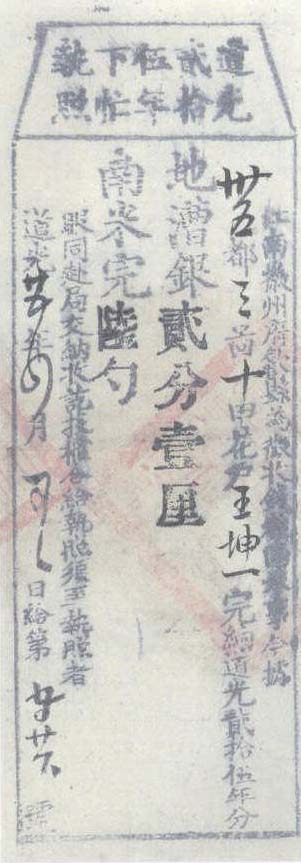 道光
貳拾
伍年
下忙
執照
江南徽州府歙縣為徵收錢糧事今據
卅五都三啚十甲花戶王坤一完納道光貳拾伍年分
地漕銀貳分壹厘
南米完陸勺
眼同赴局交納收訖投櫃合給執照須至執照者
道光廿五年 月 日給第 號